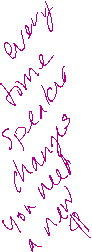 every
time
speaker
changes
you need
a new